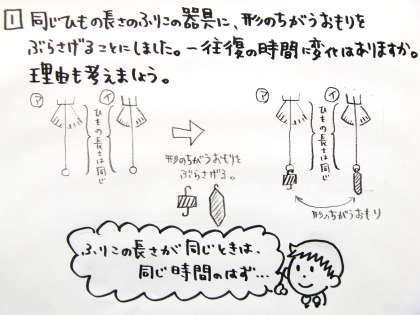 1 同じひもの長さのふりこの器具に、形のちがうおもりを
ぶらさげることにしました。一往復の時間に変化はありますか。
理由も考えましょう。
ア イ
ひもの長さは同じ
形のちがうおもりを
ぶらさげる。
ア イ
ひもの長さは同じ
形のちがうおもり
ふりこの長さが同じときは、
同じ時間のはず…